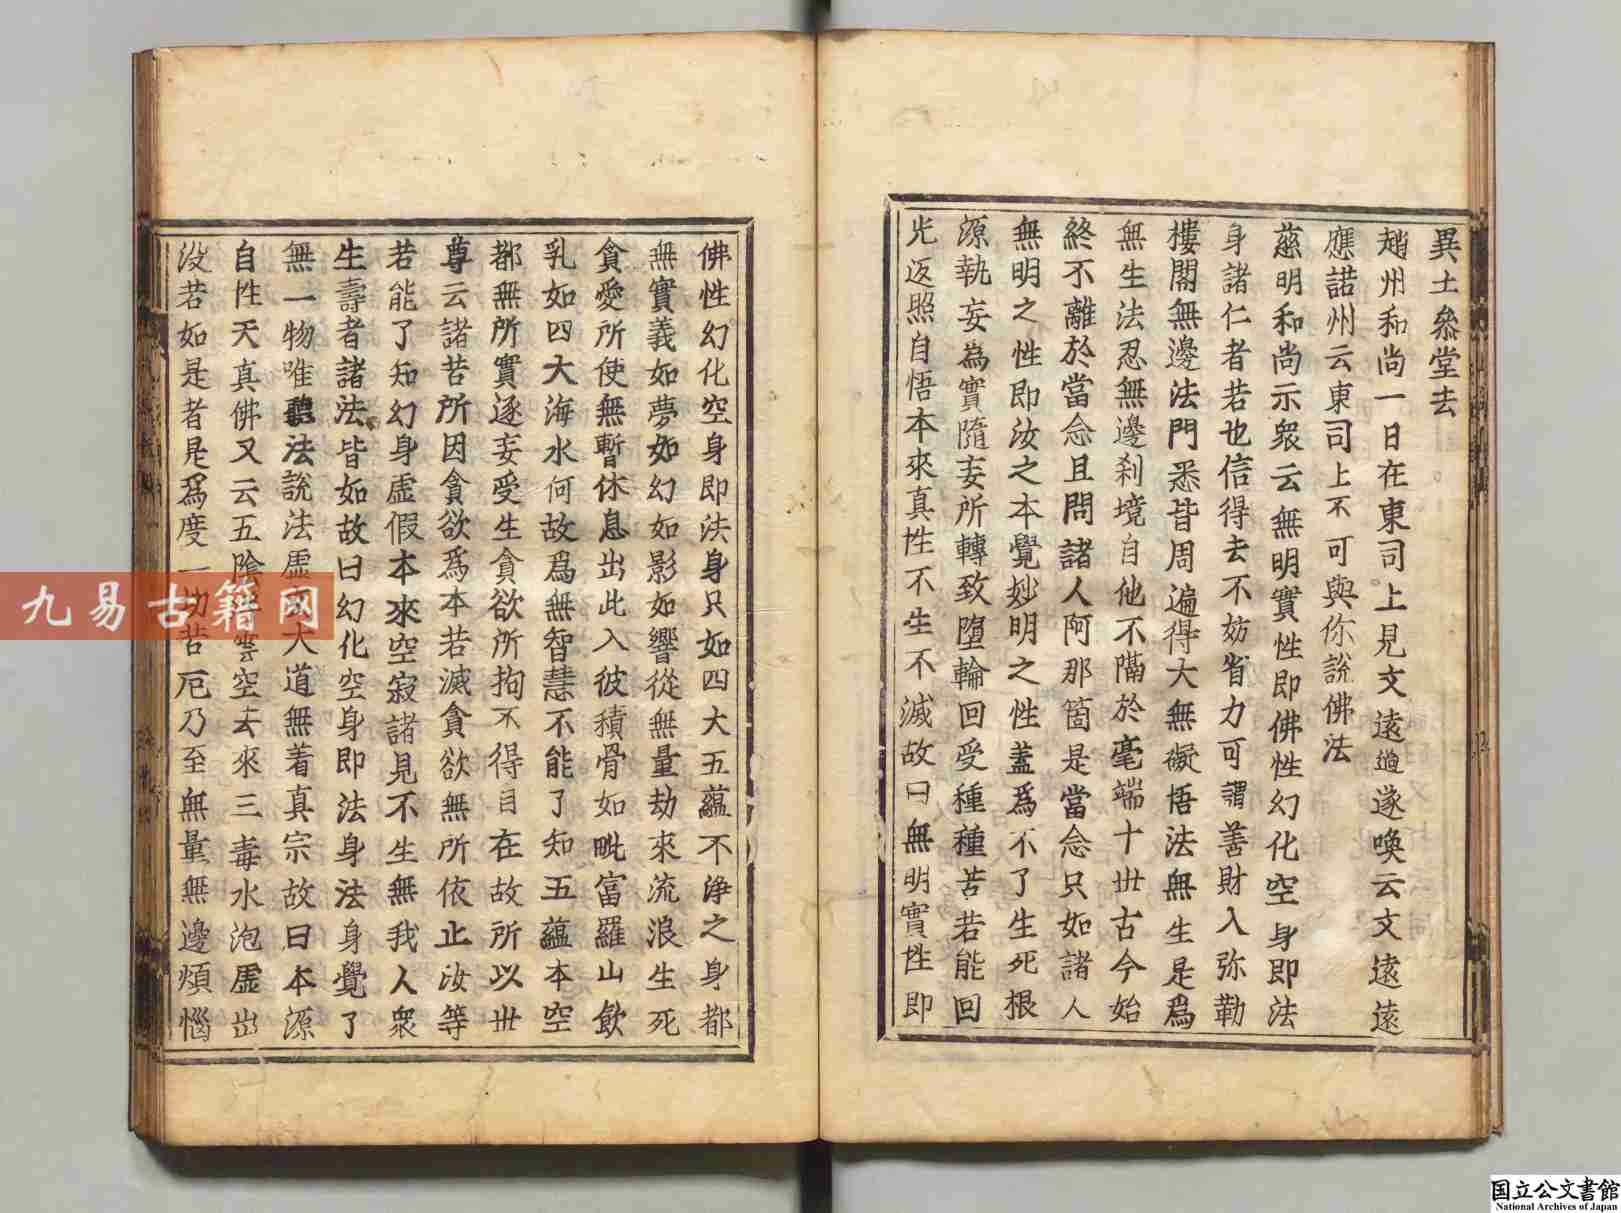 異土叅堂去
趙州和尚一日在東司上見文遠過遂喚云文遠遠
應諾州云東司上不可與你說佛法
慈明和尚示衆云無明實性即佛性幻化空身即法
身諸仁者若也信得去不妨省力可謂善財入弥勒
樓閣無邊法門悉皆周遍得大無礙悟法無生是爲
無生法忍無邊刹境自他不隔於毫端十世古今始
終不離於當念且問諸人阿那箇是當念只如諸人
無明之性即汝之本覺妙明之性盖爲不了生死根
源執妄為實隨妄所轉致墮輪回受種種苦若能回
光返照自悟本來真性不生不滅故曰無明實性即
佛性幻化空身即法身只如四大五蘊不淨之身都
無實義如夢如幻如影如響從無量劫來流浪生死
貪愛所使無暫休息出此入彼積骨如毗富羅山飲
乳如四大海水何故爲無智慧不能了知五蘊本空
都無所實逐妄受生貪欲所拘不得自在故所以世
尊云諸苦所因貪欲爲本若滅貪欲無所依止汝等
若能了知幻身虛假本來空寂諸見不生無我人衆
生壽者諸法皆如故曰幻化空身即法身法身覺了
無一物唯聽法說法虛玄大道無着真宗故曰本源
自性天真佛又云五陰雲空去來三毒水泡虛出
没若如是者是爲度一切苦厄乃至無量無邊煩惱
九易古籍网
国立公文書館
National Archives of Japan